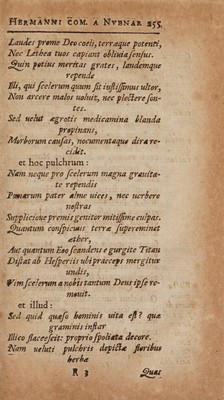 HERMANNI COM. A NVENAR 255
Laudes prome Deo coeli, terræque potenti,
Nec Lethea tuos capiant oblivia sensus.
Quin potius meritas grates, laudemque
repende
Illi, qui scelerum quum sit iustissimus ultor,
Non arcere malos voluit, nec plectere son-
tes.
Sed velut ægrotis medicamina blanda
propinans,
Morborum causas, nocumentaque dira re-
cidit.
et hoc pulchrum:
Nam neque pro scelerum magna gravita-
te rependis
Pœnarum pater alme vices, nec verbere
nostras
Suppliciove premis genitor mitissime culpas.
Quantum conspicuus terræ supereminet
æther,
Aut quantum Eoo scandens e gurgite Titan
Distat ab Hesperiis ubi præceps mergitur
undis,
Vim scelerum a nobis tantum Deus ipse re-
movit.
et illud:
Sed quid quæso hominis vita est? quæ
graminis instar
Illico flaccescit: proprio spoliata decore.
Nam veluti pulchris depictæ floribus
herbæ
R 3 Quas